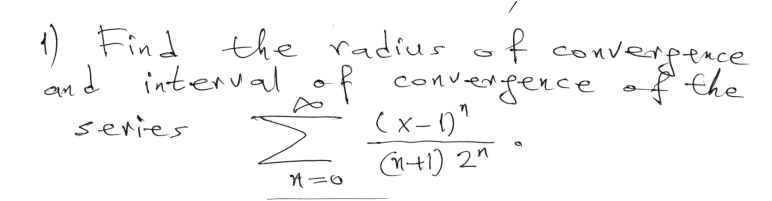 1) Find the radius of convergence
and interval of convergence of the
series ∞∑n=0 (x-1)^n / (n+1) 2^n .